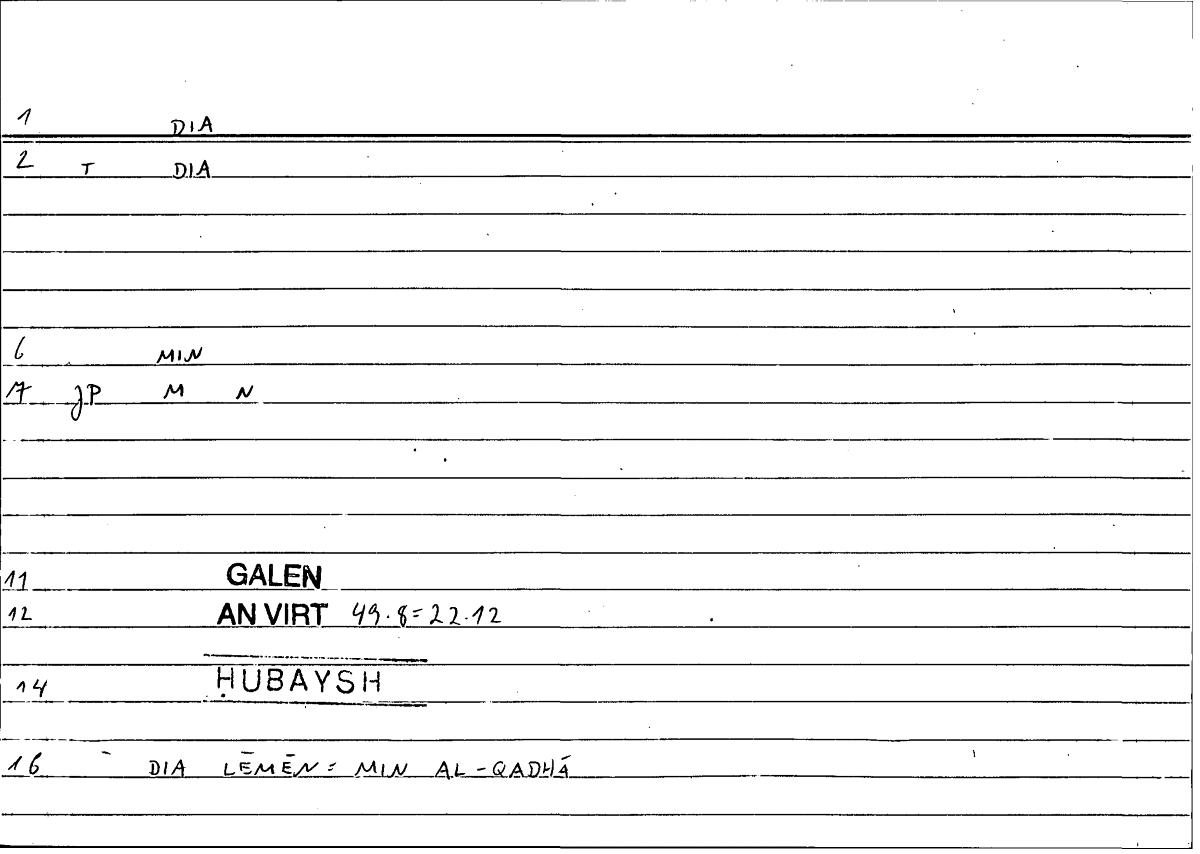 1 DIA
2 T DIA
6 MIN
7 JP M N
11 GALEN
12 AN VIRT 49.8=22.12
14 ḤUBAYSH
16 DIA LĒMĒN = MIN AL-QADHÁ